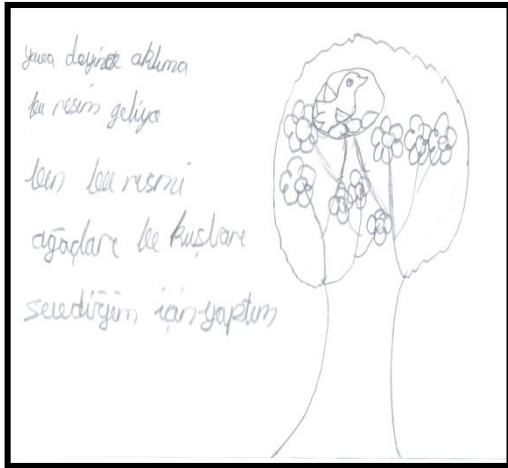 yuva deyince aklıma
bu resim geliyo
ben bu resmi
ağaçları ve kuşları
sevdiğim için yaptım